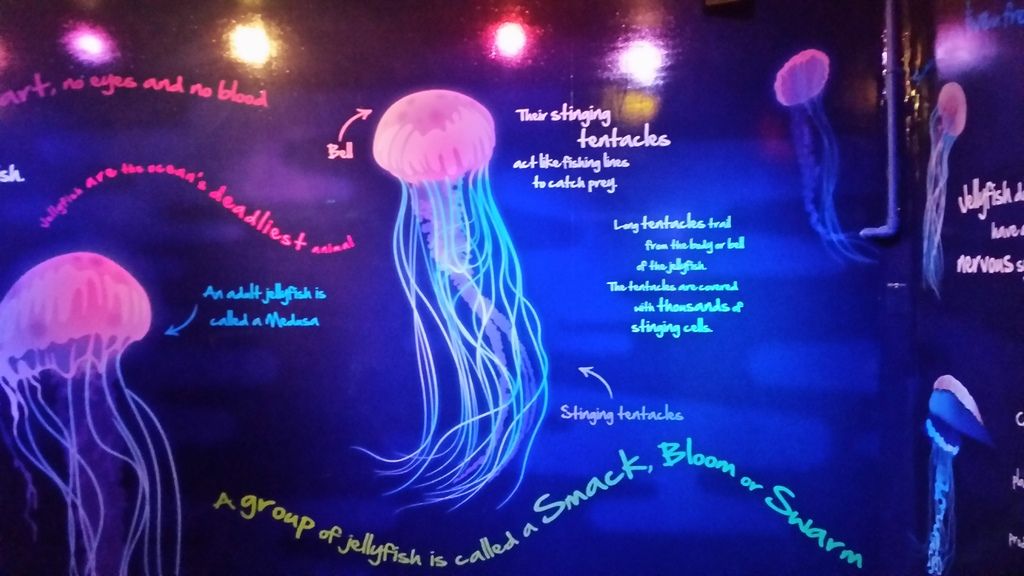 art, no eyes and no blood
sh.
Jellyfish are the ocean's deadliest animal
An adult jellyfish is
called a Medusa
Bell
Their stinging
tentacles
act like fishing lines
to catch prey.
Long tentacles trail
from the body or bell
of the jellyfish.
The tentacles are covered
with thousands of
stinging cells.
Stinging tentacles
A group of jellyfish is called a Smack, Bloom or Swarm
Jellyfish d
have
nervous s